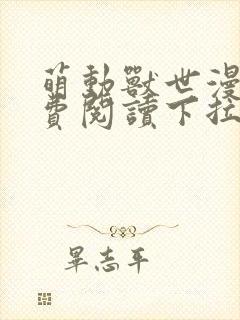 萌動獸世漫
費閱讀下拉
畢志平